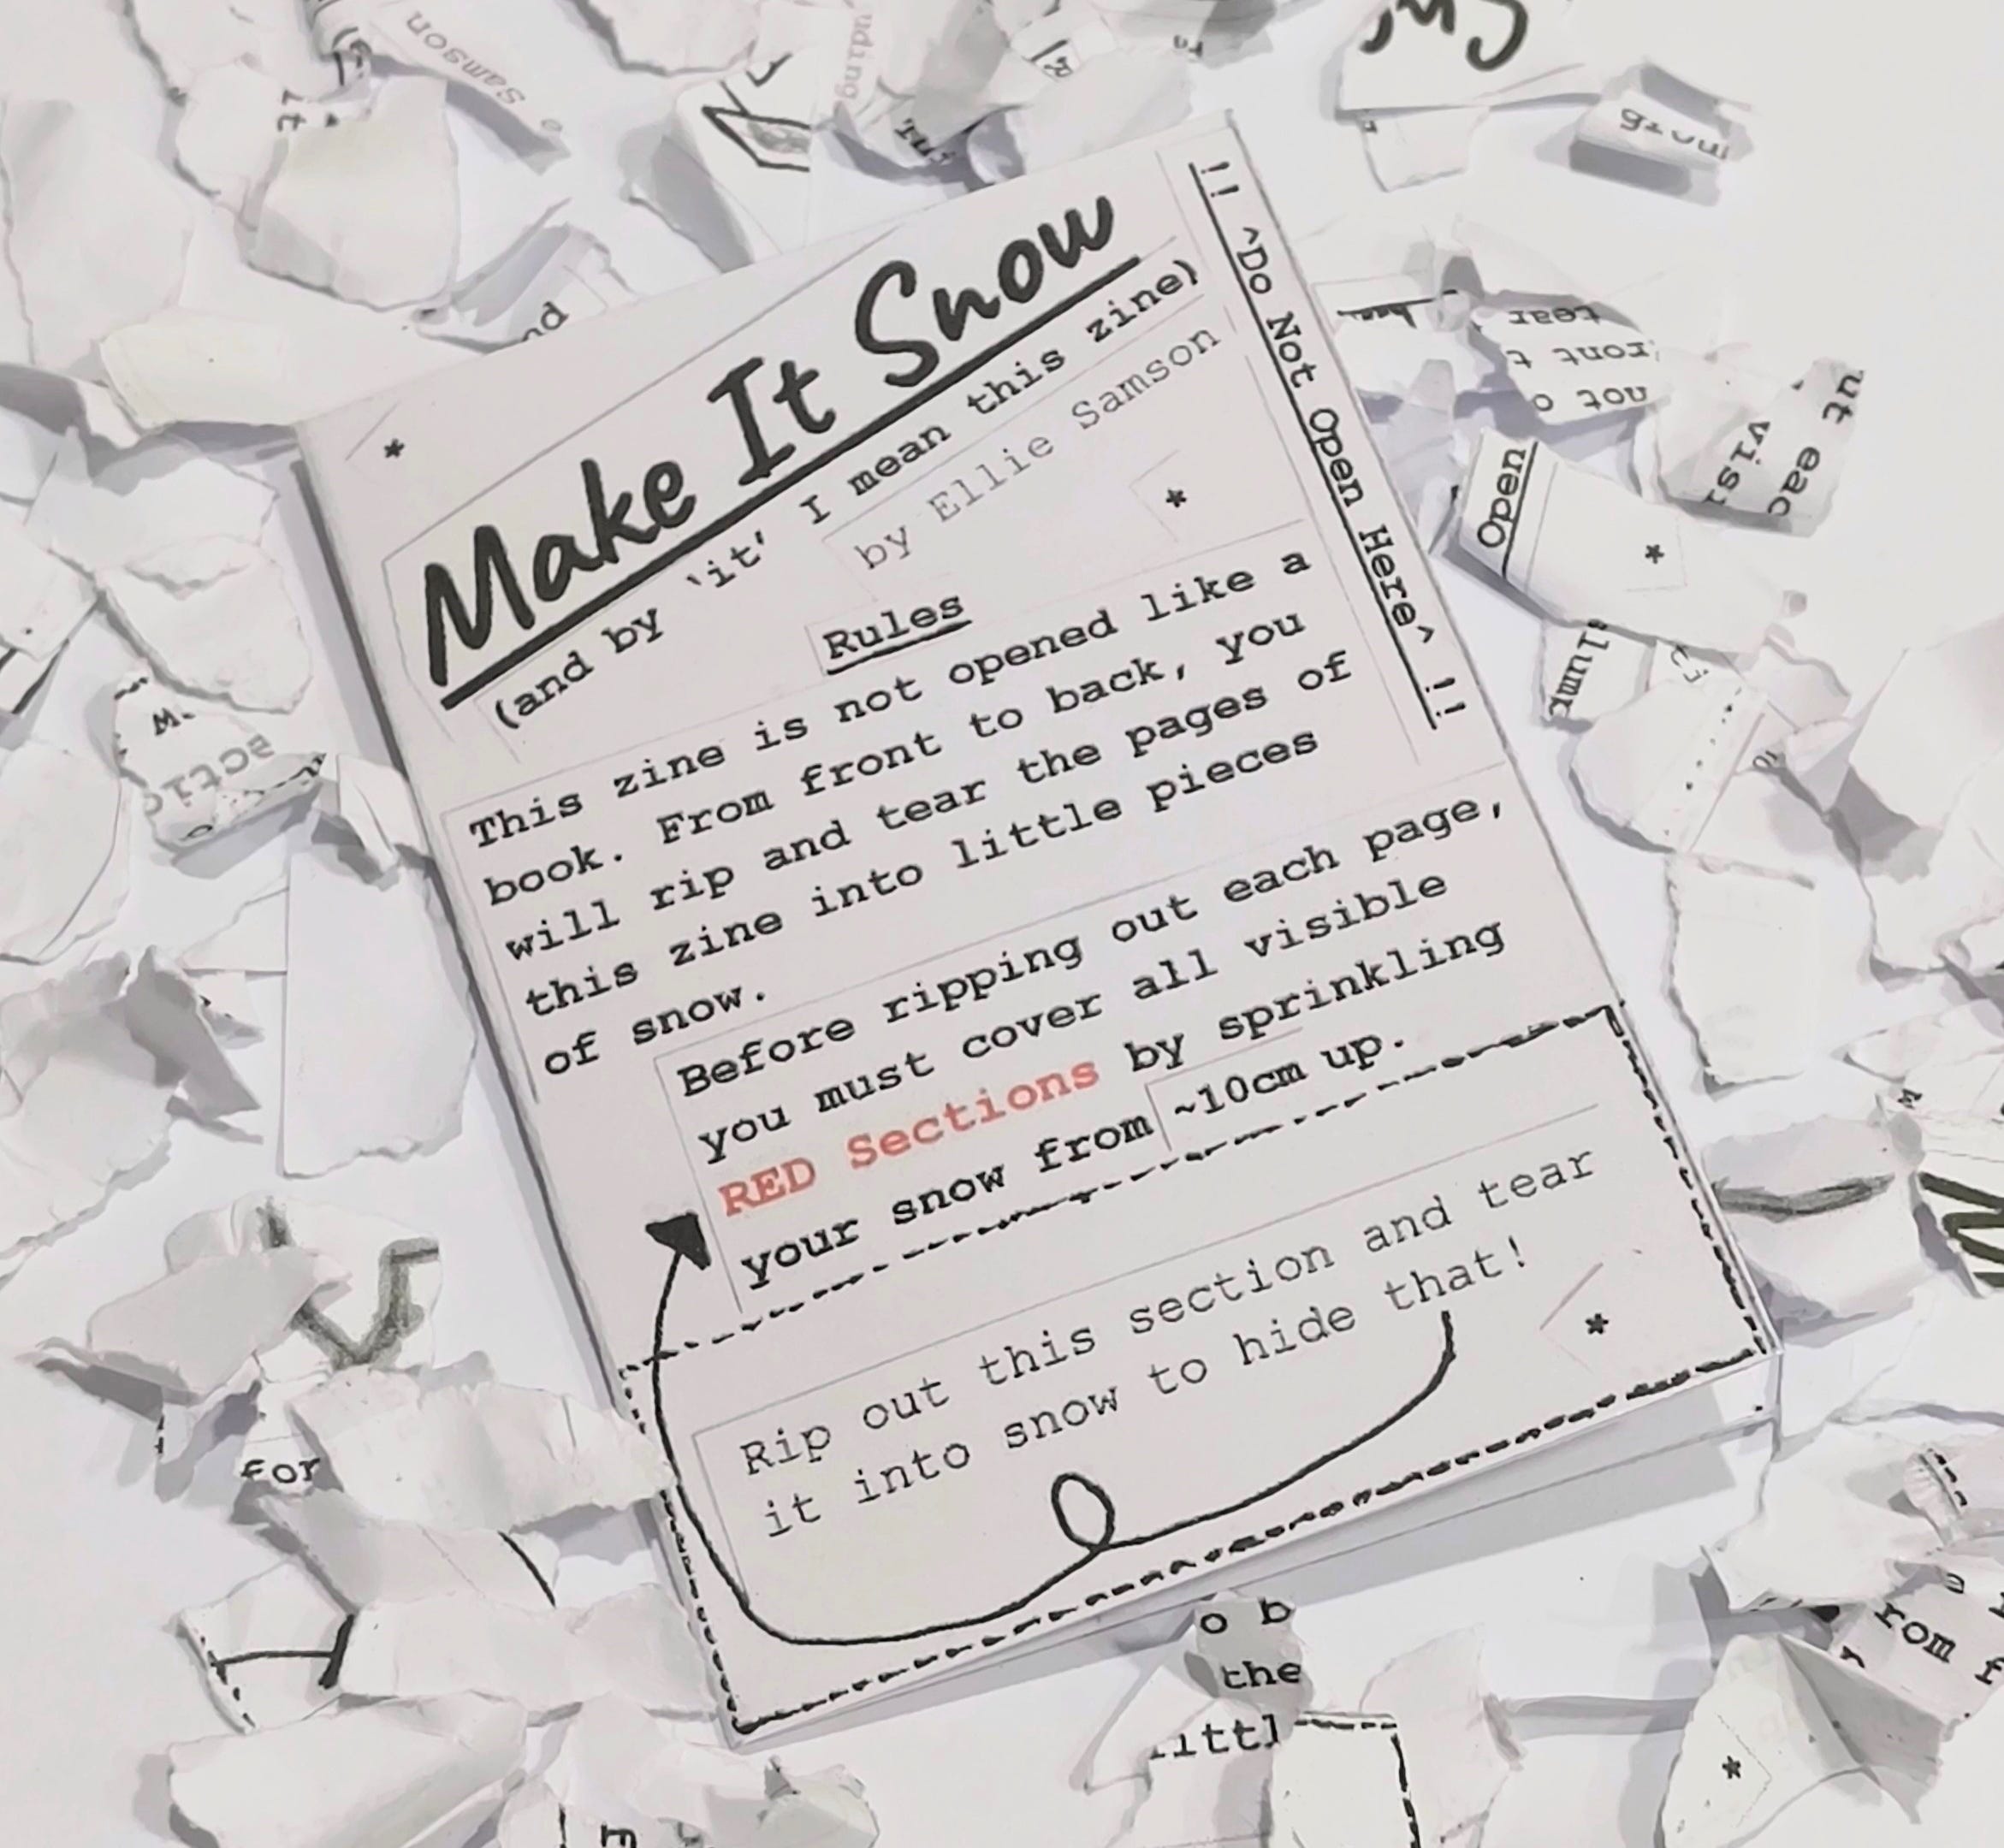 Make It Snow
(and by 'it' I mean this zine)
by Ellie Samson
!! ^Do Not Open Here^ !!
*
*
Rules
This zine is not opened like a
book. From front to back, you
will rip and tear the pages of
this zine into little pieces
of snow.
Before ripping out each page,
you must cover all visible
RED Sections by sprinkling
your snow from ~10cm up.
Rip out this section and tear
it into snow to hide that!
*
samson
Open
*
tear
ront t
not o
ut eac
visi
for
o b
the
ittl
rom f
y
*